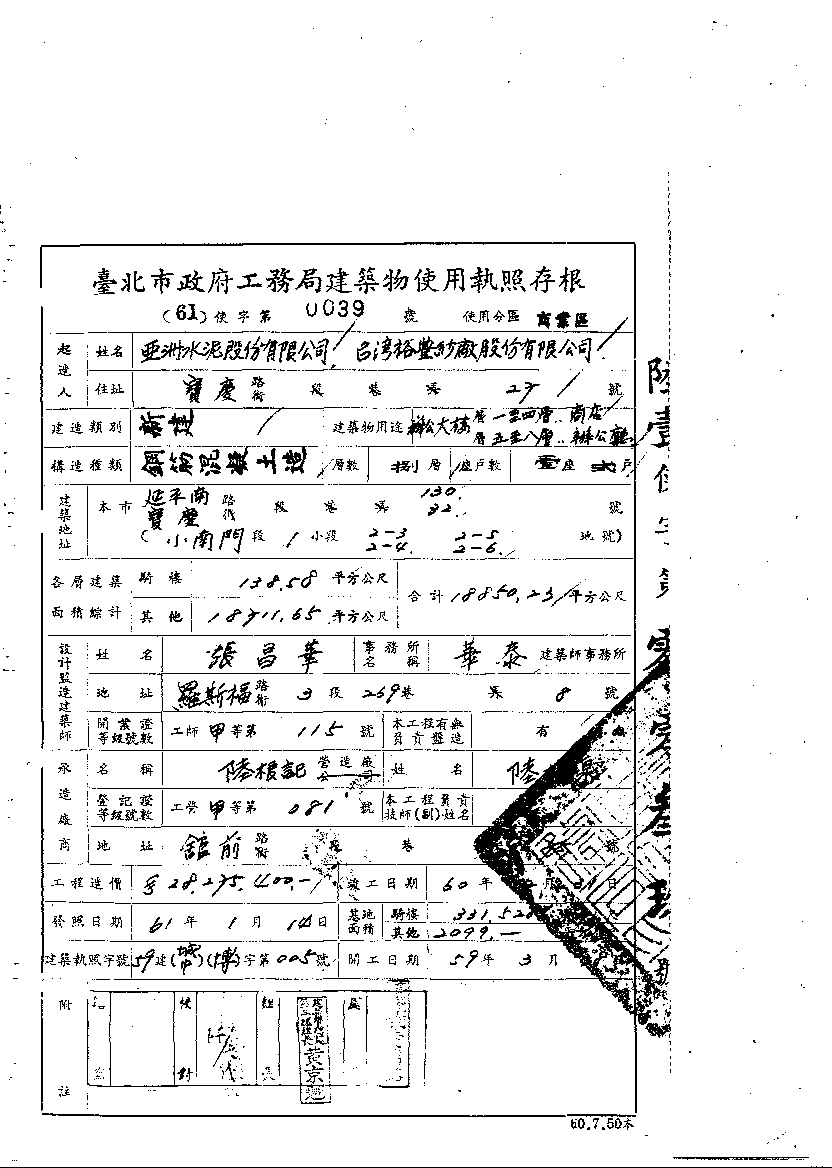 臺北市政府工務局建築物使用執照存根
(61)使字第 0039 號 使用分區 商業區
起造人 姓名 亞洲水泥股份有限公司 台湾裕豐紗廠股份有限公司
住址 寶慶路街 段 巷 弄 27 號
建造類別 新建 建築物用途 辦公大樓 層一至四層..商店 層五至八層..辦公廳
構造種類 鋼筋混凝土造 層數 捌層 座戶數 壹座 戶
建築地址 本市 延平南 寶慶 路街 段 巷 弄 130. 32. 號
(小南門段 1 小段 2-3 2-4 2-5 2-6 地號)
各層建築面積綜計 騎樓 138.58 平方公尺 合計 18850.23 平方公尺
其他 18711.65 平方公尺
設計監造建築師 姓名 張昌華 事務所名稱 華泰 建築師事務所
地址 羅斯福路街 3 段 269 巷 弄 8 號
開業證等級號數 工師甲等第 115 號 本工程有無負責監造 有
承造廠商 名稱 陸根記 營造廠公司 姓名 陸
登記證等級號數 工營甲等第 081 號 本工程負責技師(副)姓名
地址 舘前路街 段 巷 號
工程造價 28,275,400.- 竣工日期 60年 月 31日
發照日期 61年 1月 14日 基地面積 騎樓 331.528
其他 2099.-
建築執照字號 59建(城中)(博)字第005號 開工日期 59年 3月
附註
校對
組長
黃京
60.7.50本
陸壹使字第零零叁玖號